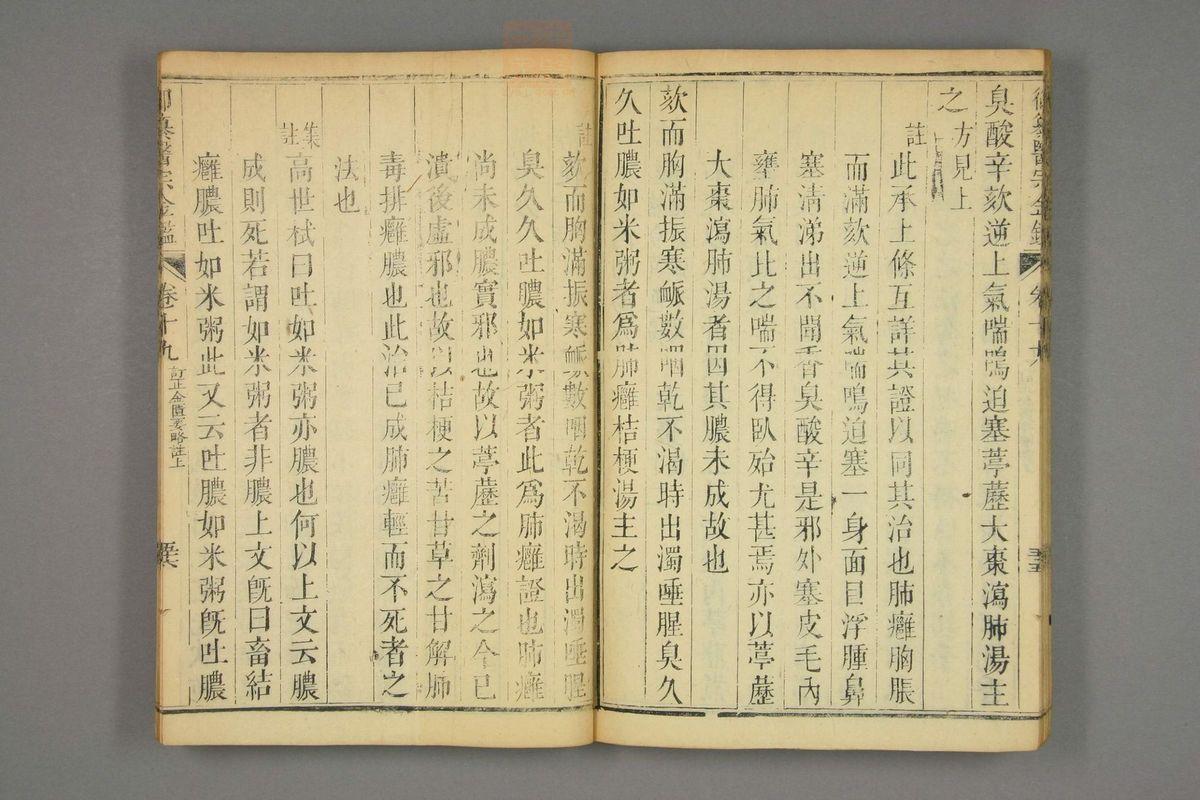 御纂醫宗金鑑 卷十九
臭酸辛欬逆上氣喘鳴迫塞葶藶大棗瀉肺湯主
之方見上
註此承上條互詳其證以同其治也肺癰胸脹
而滿欬逆上氣喘鳴迫塞一身面目浮腫鼻
塞清涕出不聞香臭酸辛是邪外塞皮毛內
壅肺氣比之喘不得臥殆尤甚焉亦以葶藶
大棗瀉肺湯者因其膿未成故也
欬而胸滿振寒脈數咽乾不渴時出濁唾腥臭久
久吐膿如米粥者為肺癰桔梗湯主之
註欬而胸滿振寒脈數咽乾不渴時出濁唾腥
臭久久吐膿如米粥者此為肺癰證也肺癰
尚未成膿實邪也故以葶藶之劑瀉之今已
潰後虛邪也故以桔梗之苦甘草之甘解肺
毒排癰膿也此治已成肺癰輕而不死者之
法也
集註高世栻曰吐如米粥亦膿也何以上文云膿
成則死若謂如米粥者非膿上文既曰畜結
癰膿吐如米粥此又云吐膿如米粥既吐膿
御纂醫宗金鑑 卷十九 訂正金匱要略註上